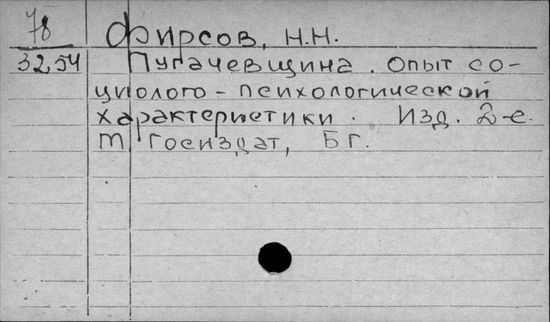 78 Фирсов, Н.Н.
3254 Пугачевщина. Опыт со-
циолого-психологической
характеристики. Изд. 2-е.
т Госиздат, Б г.